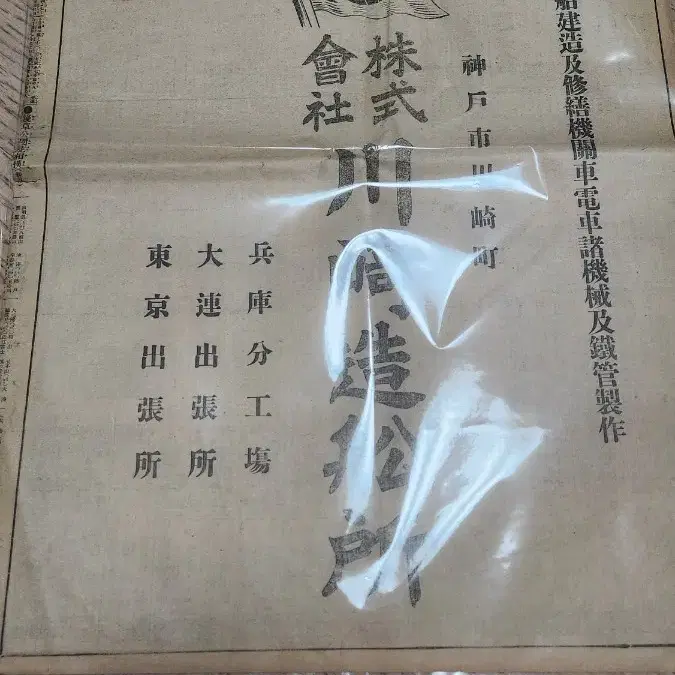 船建造及修繕機關車電車諸機械及鐵管製作
神戸市川崎町
株式會社
川崎造船所
兵庫分工塲
大連出張所
東京出張所